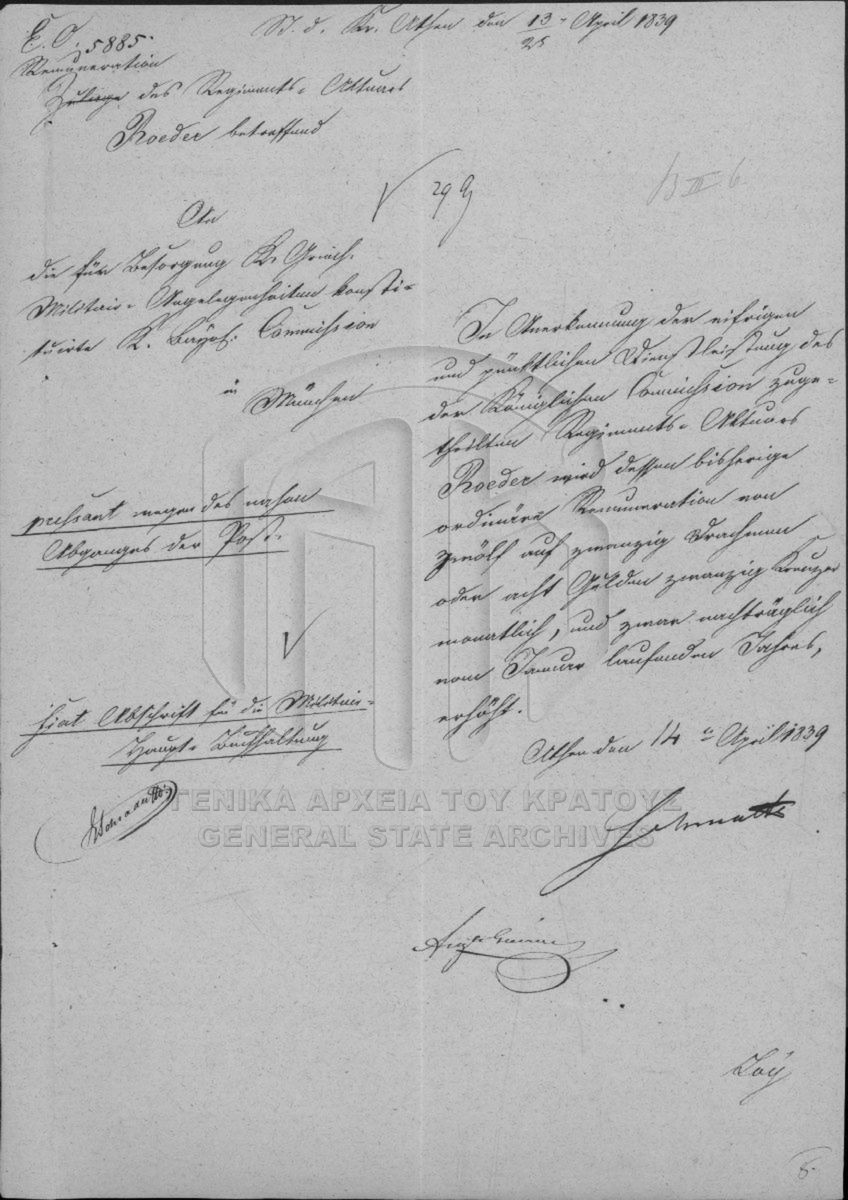 E. O. 5885.
St. d. Kr. Athen den 13/25 April 1839
Remuneration
Zulage des Regiments-Aktuars
Roeder betreffend
An
die für Besorgung K. Griech.
Militair-Angelegenheiten konsti-
tuirte K. Bayr. Commission
in
München
pressant wegen des nahen
Abganges der Post.
fiat Abschrift für die Militair-
Haupt-Buchhaltung
B III 6
In Anerkennung der eifrigen
und pünktlichen Dienstleistung des
der Königlichen Commission zuge-
theilten Regiments-Aktuars
Roeder wird dessen bisherige
ordinäre Remuneration von
zwölf auf zwanzig Drachmen
oder acht Gulden zwanzig Kreuzer
monatlich, und zwar nachträglich
vom Januar laufenden Jahres,
erhöht.
Athen den 14 April 1839
Schmaltz
ΓΕΝΙΚΑ ΑΡΧΕΙΑ ΤΟΥ ΚΡΑΤΟΥΣ
GENERAL STATE ARCHIVES